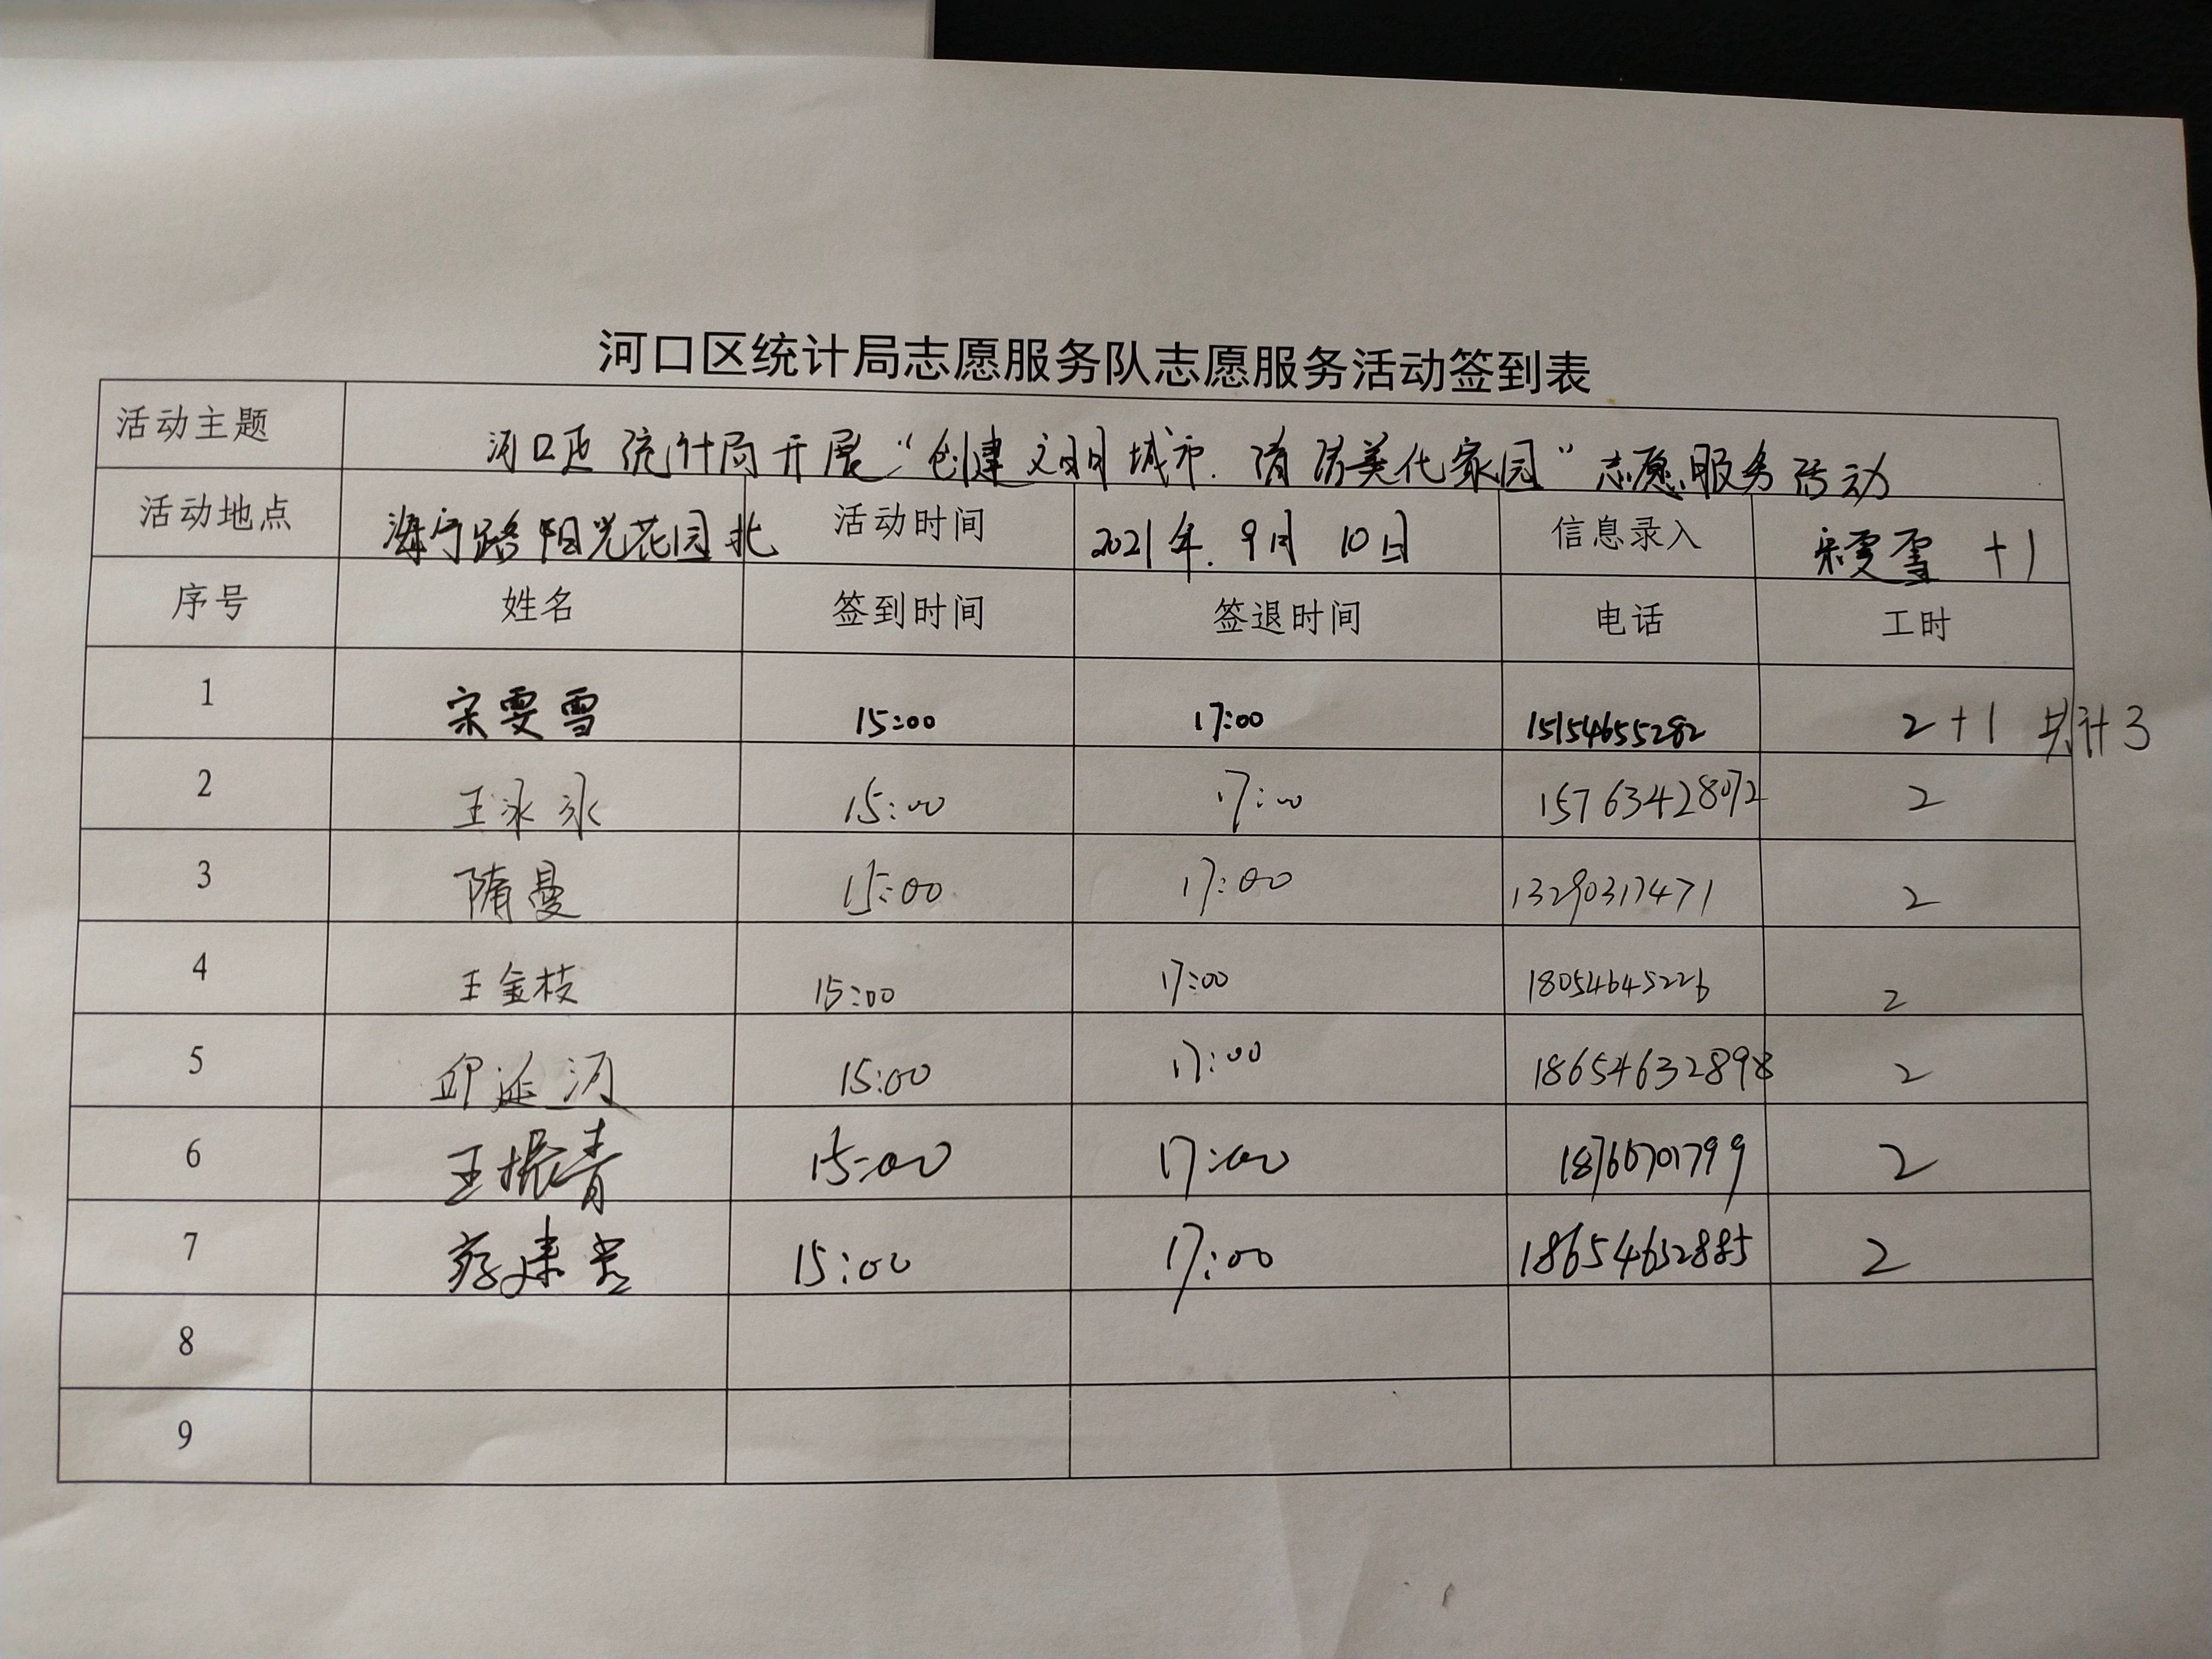 河口区统计局志愿服务队志愿服务活动签到表
活动主题 河口区统计局开展“创建文明城市.清洁美化家园”志愿服务活动
活动地点 海宁路阳光花园北 活动时间 2021年.9月10日 信息录入 宋雯雪 +1
序号 姓名 签到时间 签退时间 电话 工时
1 宋雯雪 15:00 17:00 15154655282 2+1 共计3
2 王永永 15:00 17:00 15763428072 2
3 隋曼 15:00 17:00 13290317471 2
4 王金枝 15:00 17:00 18054645226 2
5 邱延河 15:00 17:00 18654632898 2
6 王振青 15:00 17:00 18760701799 2
7 15:00 17:00 18654652885 2
8
9